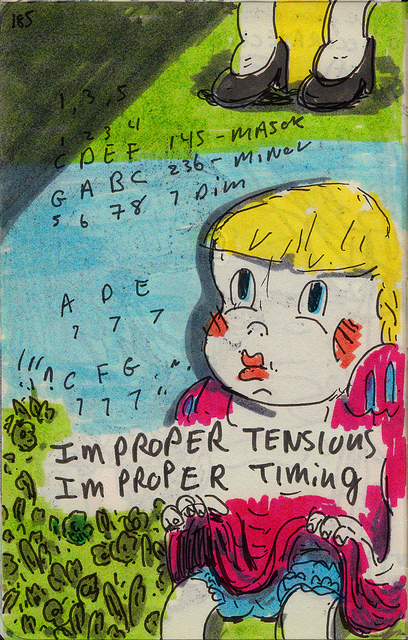 185
1, 3, 5
1 2 3 4
C D E F 145 - MAJOR
G A B C 236 - MINOR
5 6 7 8 7 Dim
A D E
7 7 7
C F G
7 7 7
IMPROPER TENSIONS
IMPROPER TIMING